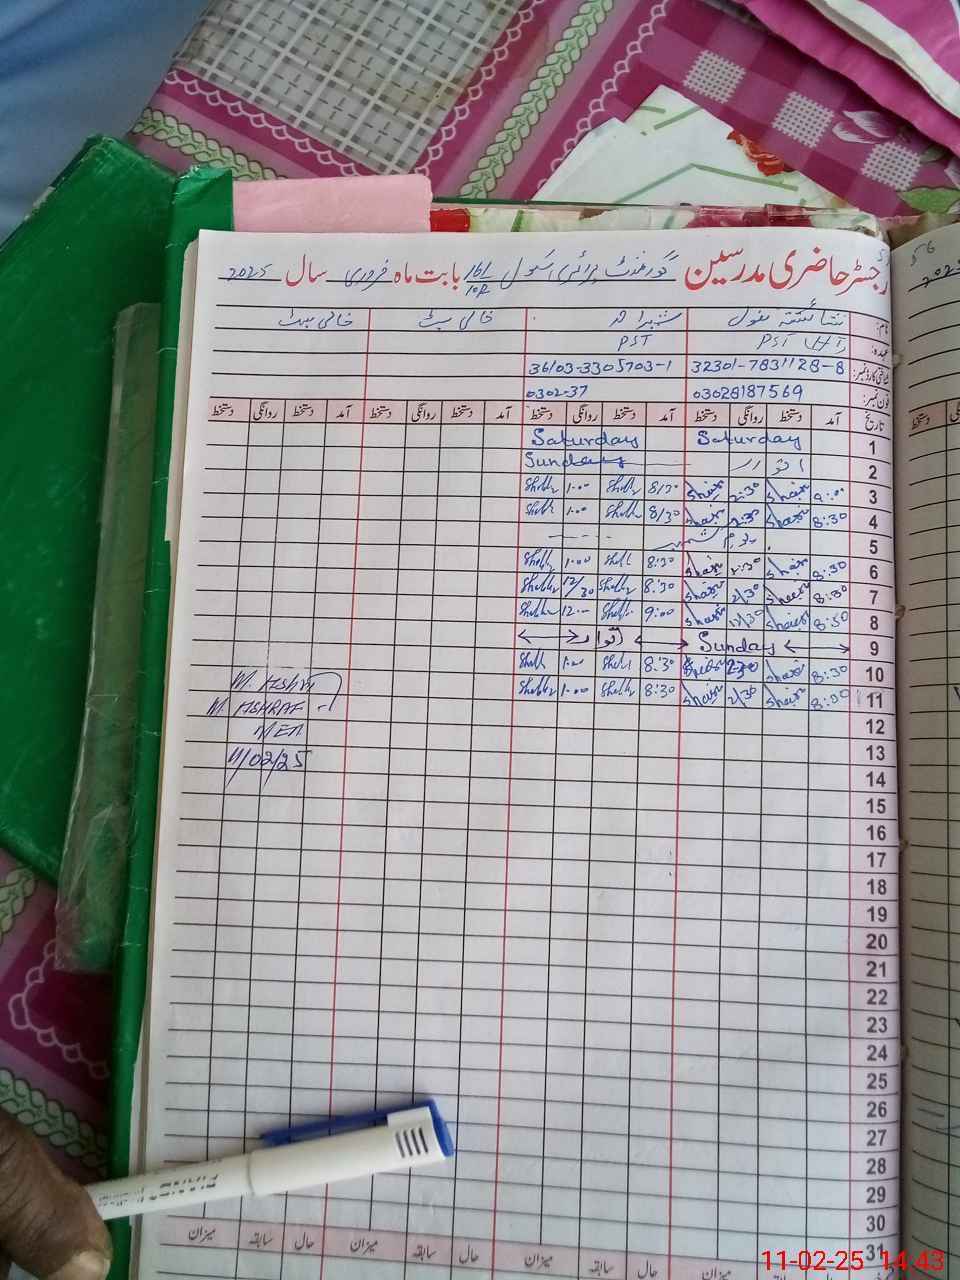 رجسٹر حاضری مدرسین گورنمنٹ پرائمری سکول 161/10R بابت ماہ فروری سال 2025
نام: شائستہ بتول خالی سیٹ خالی سیٹ
عہدہ: PST PST
شناختی کارڈ نمبر: 32301-7831128-8 36103-3305703-1
فون نمبر: 03028187569 0302-37
تاریخ آمد دستخط روانگی دستخط آمد دستخط روانگی دستخط آمد دستخط روانگی دستخط آمد دستخط روانگی دستخط
1 Saturday Saturday
2 اتوار Sunday
3 9:00 2:30 8/30 1:00
4 8:30 2:30 8/30 1:00
5 یوم کشمیر
6 8:30 2:30 8:30 1:00
7 8:30 2/30 8:30 12/30
8 8:50 12/30 9:00 12:00
9 Sunday اتوار
10 8:30 2:30 8:30 1:00
11 8:30 2/30 8:30 1:00
M. Ashraf
M. ASHRAF
MEA
11/02/25
12
13
14
15
16
17
18
19
20
21
22
23
24
25
26
27
28
29
30
31
حال سابقہ میزان حال سابقہ میزان حال سابقہ میزان حال سابقہ میزان
56
PIANO
11-02-25 14:43